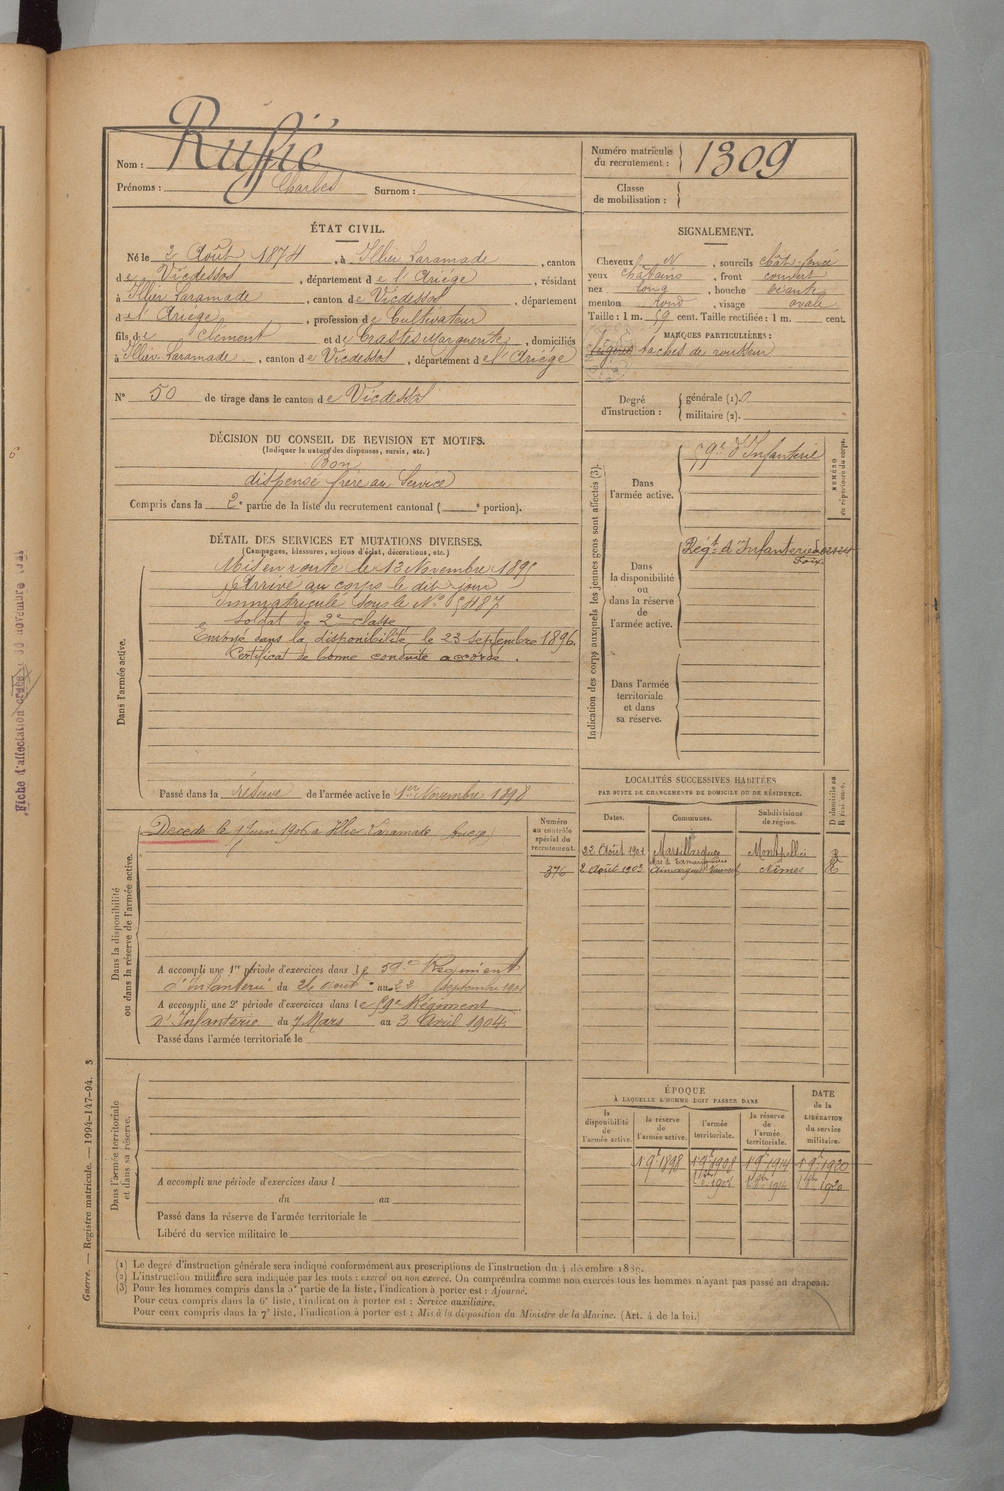 Nom : Ruffié
Prénoms : Charles Surnom :
Numéro matricule du recrutement : 1309
Classe de mobilisation :
ÉTAT CIVIL.
Né le 2 Août 1874, à Illier Laramade, canton
de Vicdessos, département de l'Ariége, résidant
à Illier Laramade, canton de Vicdessos, département
de l'Ariege, profession de Cultivateur
fils de Clément et de Marguerite, domiciliés
à Illier Laramade, canton de Vicdessos, département de l'Ariége
N° 50 de tirage dans le canton de Vicdessos
DÉCISION DU CONSEIL DE REVISION ET MOTIFS.
(Indiquer la nature des dispenses, sursis, etc.)
Bon
dispensé frère au Service
Compris dans la 2e partie de la liste du recrutement cantonal ( e portion).
DÉTAIL DES SERVICES ET MUTATIONS DIVERSES.
(Campagnes, blessures, actions d'éclat, décorations, etc.)
Dans l'armée active.
Mis en route le 13 Novembre 1895
Arrivé au corps le dit jour
Immatriculé sous le N° 5487
Soldat de 2e classe
Envoyé dans la disponibilité le 23 Septembre 1896.
Certificat de bonne conduite accordé.
Passé dans la réserve de l'armée active le 1er Novembre 1898
SIGNALEMENT.
Cheveux N, sourcils chât foncé
yeux chatains, front couvert
nez long, bouche
menton rond, visage ovale
Taille : 1 m. 59 cent. Taille rectifiée : 1 m. cent.
MARQUES PARTICULIÈRES :
taches de rousseur
Degré d'instruction :
générale (1). 0
militaire (2).
Indication des corps auxquels les jeunes gens sont affectés (3).
NUMÉRO au répertoire du corps.
Dans l'armée active.
59e d'Infanterie
Dans la disponibilité ou dans la réserve de l'armée active.
Régt d'Infanterie
Foix
Dans l'armée territoriale et dans sa réserve.
LOCALITÉS SUCCESSIVES HABITÉES
PAR SUITE DE CHANGEMENTS DE DOMICILE OU DE RÉSIDENCE.
Dates. Communes. Subdivisions de région.
22 Août 1901 Marsillargues Montpellier
2 Août 1903 Aimargues Nîmes R
Dans la disponibilité ou dans la réserve de l'armée active.
Numéro au contrôle spécial du recrutement.
376
Décédé le 1 Juin 1906 à Illier Laramade
A accompli une 1re période d'exercices dans le 59e Régiment
d'Infanterie du 26 août au 22 Septembre 1901
A accompli une 2e période d'exercices dans le 59e Régiment
d'Infanterie du 7 Mars au 3 Avril 1904.
Passé dans l'armée territoriale le
Dans l'armée territoriale et dans sa réserve.
A accompli une période d'exercices dans l
du au
Passé dans la réserve de l'armée territoriale le
Libéré du service militaire le
ÉPOQUE
À LAQUELLE L'HOMME DOIT PASSER DANS
DATE de la LIBÉRATION du service militaire.
la disponibilité de l'armée active.
la réserve de l'armée active.
l'armée territoriale.
la réserve de l'armée territoriale.
1 9e 1898 1 9e 1908 1 9e 1914 1 9e 1920
(1) Le degré d'instruction générale sera indiqué conformément aux prescriptions de l'instruction du 4 décembre 1889.
(2) L'instruction militaire sera indiquée par les mots : exercé ou non exercé. On comprendra comme non exercés tous les hommes n'ayant pas passé au drapeau.
(3) Pour les hommes compris dans la 5e partie de la liste, l'indication à porter est : Ajourné.
Pour ceux compris dans la 6e liste, l'indication à porter est : Service auxiliaire.
Pour ceux compris dans la 7e liste, l'indication à porter est : Mis à la disposition du Ministre de la Marine. (Art. 4 de la loi.)
Guerre. — Registre matricule. — 1994-147-94. 3
Fiche d'affectation novembre